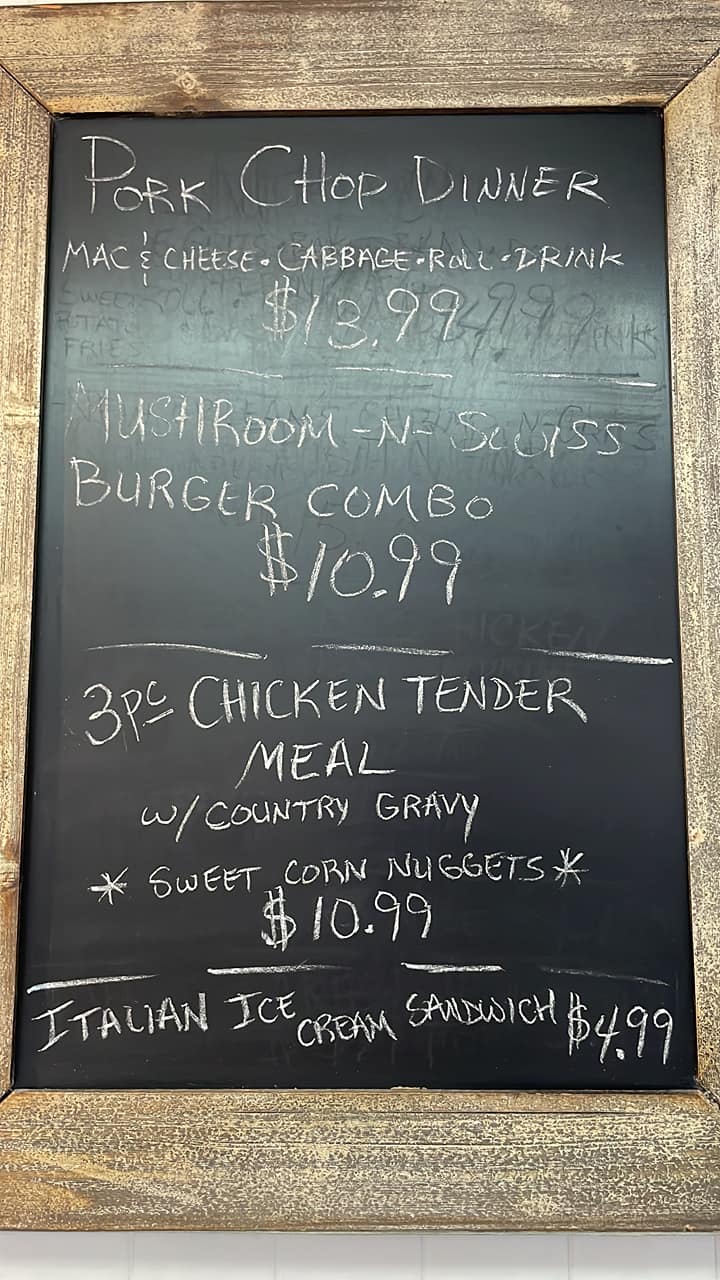 PORK CHOP DINNER
MAC & CHEESE • CABBAGE • ROLL • DRINK
$13.99
SWEET
POTATO
FRIES
MUSHROOM -N- SWISS
BURGER COMBO
$10.99
3PC CHICKEN TENDER
MEAL
W/ COUNTRY GRAVY
* SWEET CORN NUGGETS *
$10.99
ITALIAN ICE CREAM SANDWICH $4.99